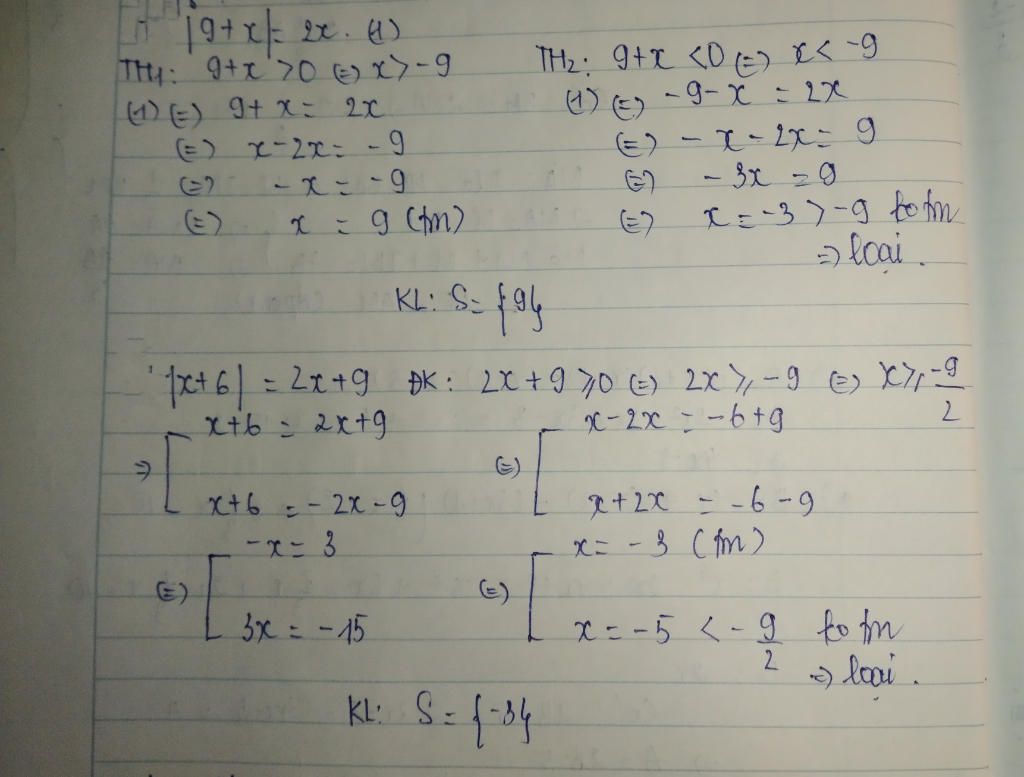 |9+x| = 2x. (1)
TH1: 9+x > 0 (=) x > -9
(1) (=) 9+x = 2x
(=) x-2x = -9
(=) -x = -9
(=) x = 9 (tm)
TH2: 9+x < 0 (=) x < -9
(1) (=) -9-x = 2x
(=) -x-2x = 9
(=) -3x = 9
(=) x = -3 > -9 ko tm
=) loại.
KL: S = {9}
|x+6| = 2x+9 ĐK: 2x+9 ⩾ 0 (=) 2x ⩾ -9 (=) x ⩾ -9/2
=) [ x+6 = 2x+9 (=) [ x-2x = -6+9
x+6 = -2x-9 x+2x = -6-9
(=) [ -x = 3 (=) [ x = -3 (tm)
3x = -15 x = -5 < -9/2 ko tm
=) loại.
KL: S = {-3}